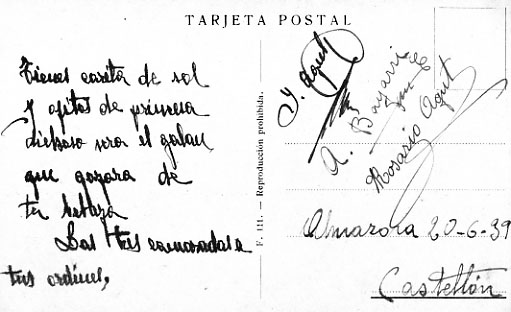 TARJETA POSTAL
Tienes carita de sol
y ojitos de primera
dichoso sera el galan
que gozara de
tu belleza
Las tres camaradas a
tus ordenes,
F. 111. — Reproducción prohibida.
J. Agut
A. Bayarri
Rosario Agut
Almazora 20-6-39
Castellón